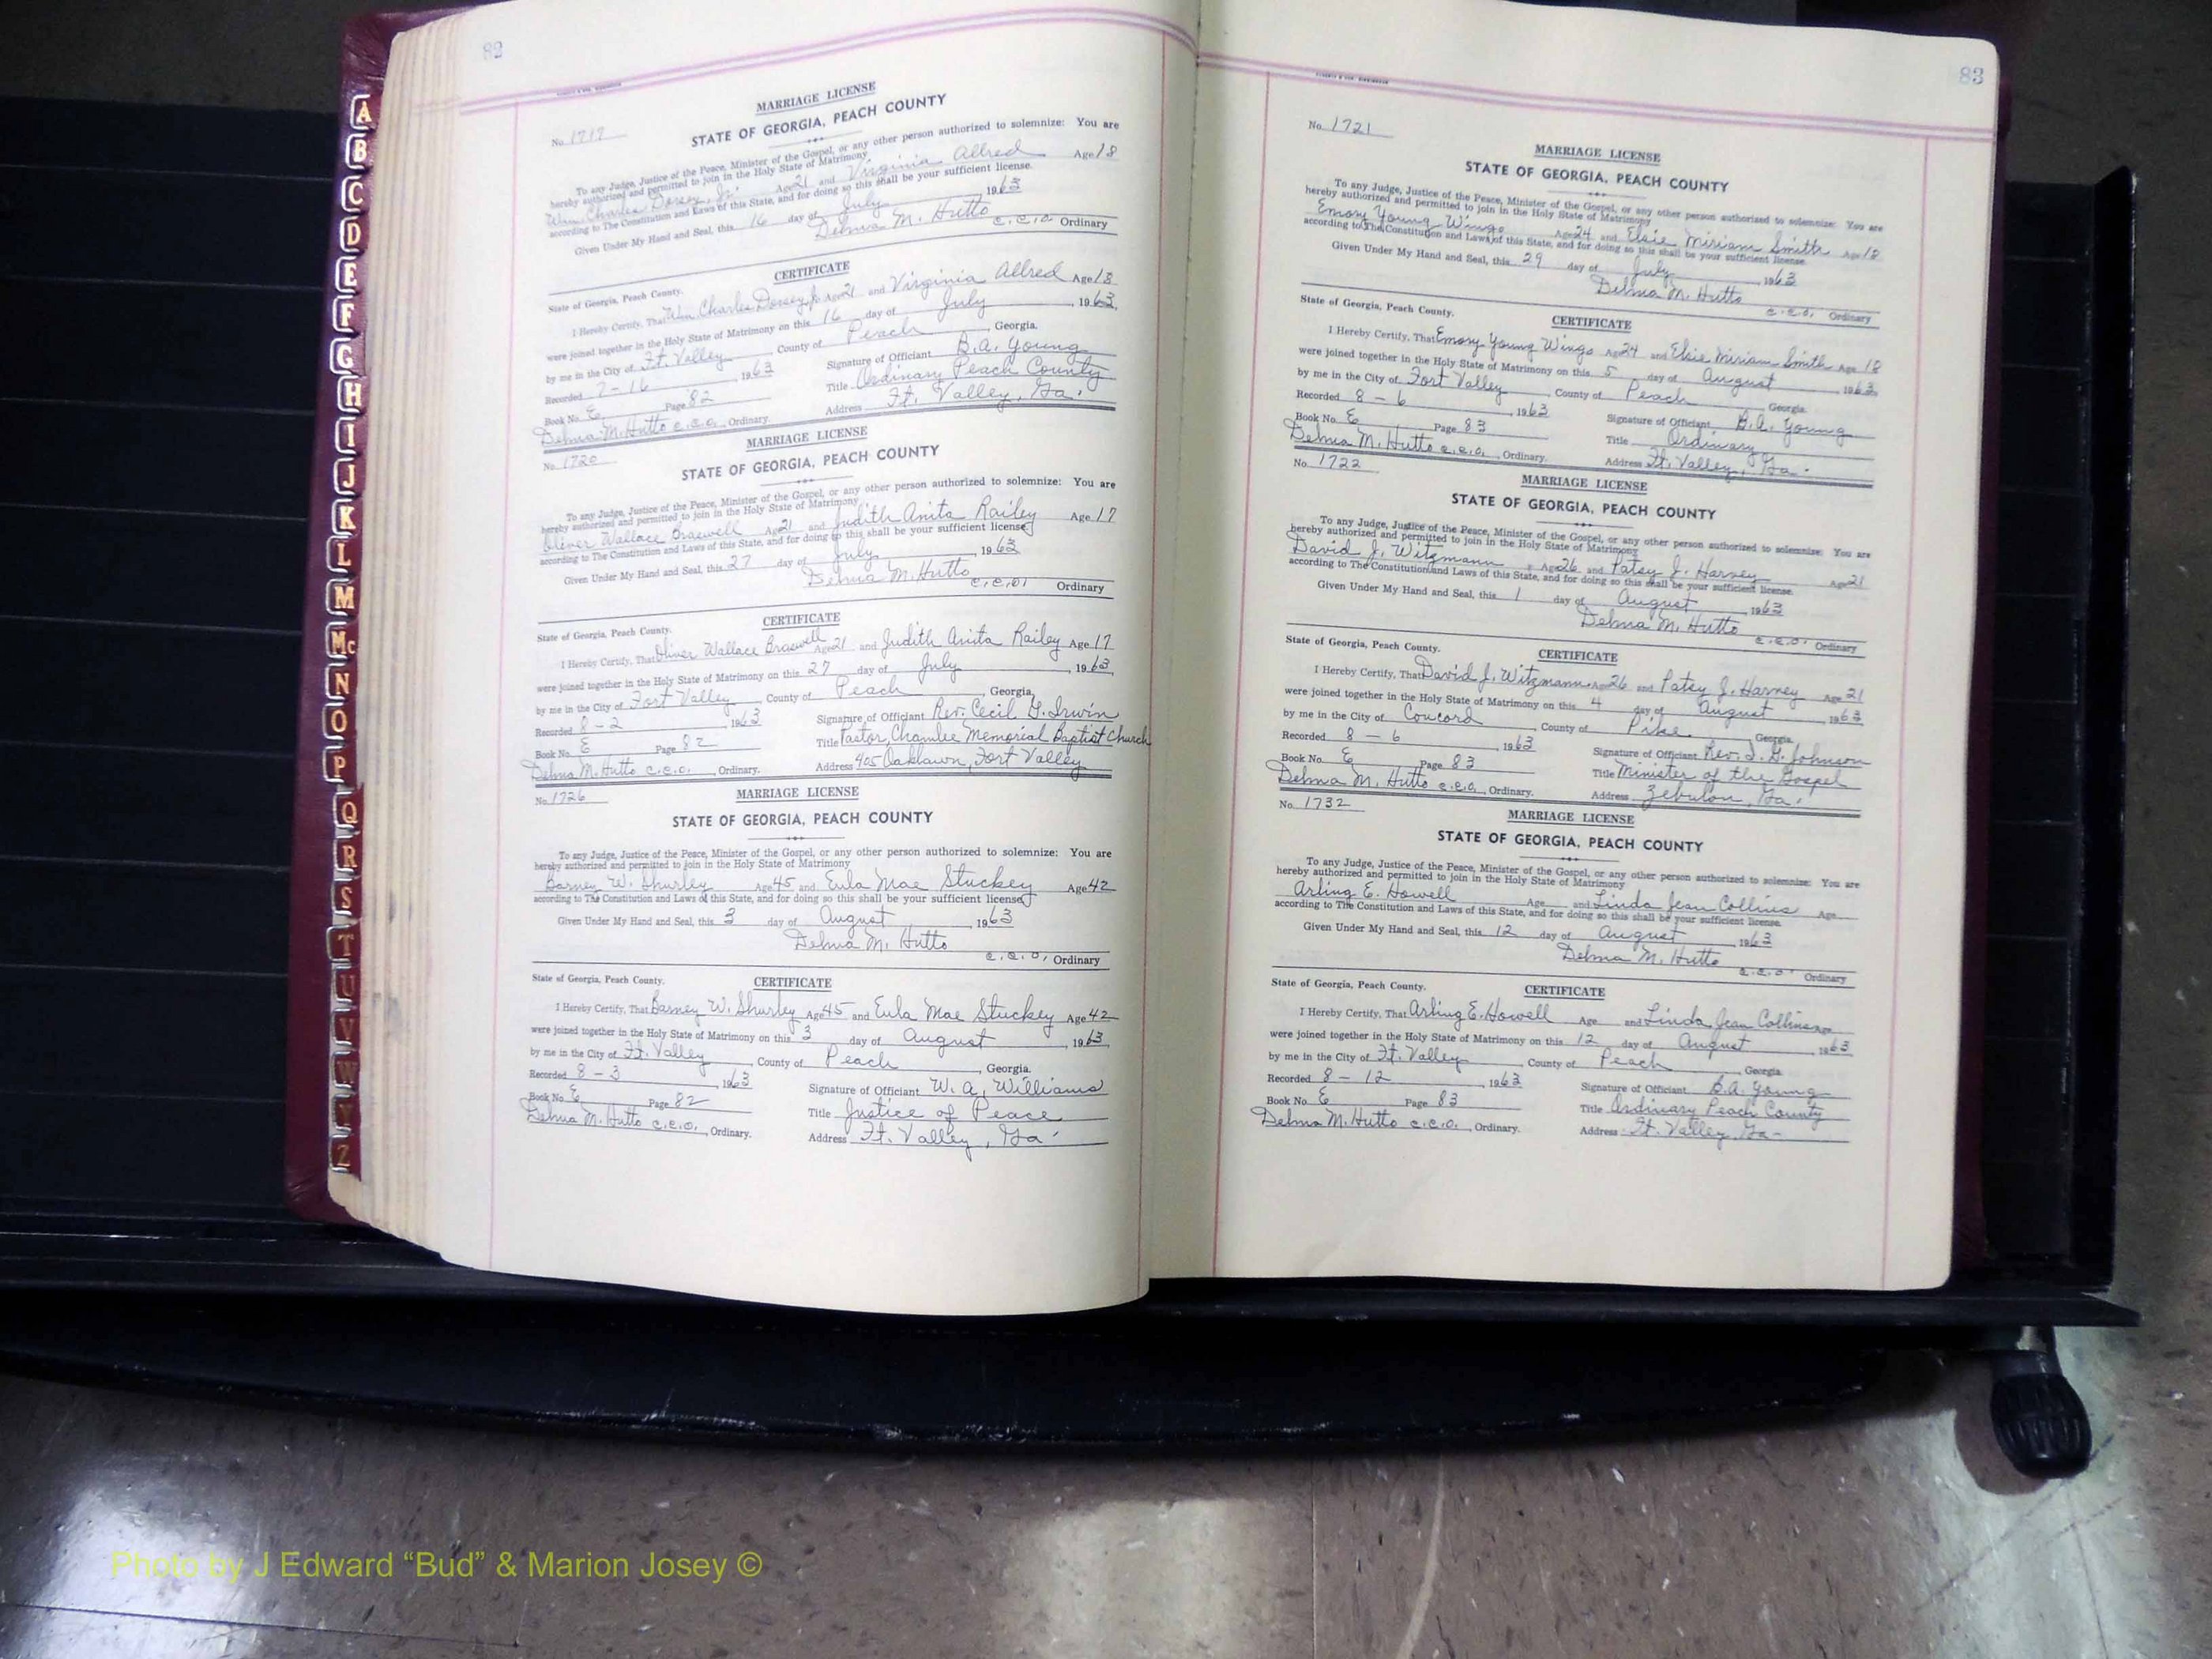 82
MARRIAGE LICENSE
No. 1717
STATE OF GEORGIA, PEACH COUNTY
To any Judge, Justice of the Peace, Minister of the Gospel, or any other person authorized to solemnize: You are
hereby authorized and permitted to join in the Holy State of Matrimony
Wm. Charles Dorsey, Jr. Age 21 and Virginia Allred Age 18
according to The Constitution and Laws of this State, and for doing so this shall be your sufficient license.
Given Under My Hand and Seal, this 16 day of July, 1963
Delma M. Hutto
c.c.o. Ordinary
CERTIFICATE
State of Georgia, Peach County.
I Hereby Certify, That Wm. Charles Dorsey, Jr. Age 21 and Virginia Allred Age 18
were joined together in the Holy State of Matrimony on this 16 day of July, 1963,
by me in the City of Ft. Valley County of Peach, Georgia.
Recorded 7-16, 1963 Signature of Officiant B.A. Young
Book No. E Page 82 Title Ordinary Peach County
Delma M. Hutto c.c.o. Ordinary. Address Ft. Valley, Ga.
MARRIAGE LICENSE
No. 1720
STATE OF GEORGIA, PEACH COUNTY
To any Judge, Justice of the Peace, Minister of the Gospel, or any other person authorized to solemnize: You are
hereby authorized and permitted to join in the Holy State of Matrimony
Oliver Wallace Braswell Age 21 and Judith Anita Railey Age 17
according to The Constitution and Laws of this State, and for doing so this shall be your sufficient license.
Given Under My Hand and Seal, this 27 day of July, 1963
Delma M. Hutto
c.c.o. Ordinary
CERTIFICATE
State of Georgia, Peach County.
I Hereby Certify, That Oliver Wallace Braswell Age 21 and Judith Anita Railey Age 17
were joined together in the Holy State of Matrimony on this 27 day of July, 1963,
by me in the City of Fort Valley, County of Peach, Georgia.
Recorded 8-2 1963 Signature of Officiant Rev. Cecil G. Irwin
Book No. E Page 82 Title Pastor, Chamlee Memorial Baptist Church
Delma M. Hutto c.c.o., Ordinary. Address 405 Oaklawn, Fort Valley
No. 1726
MARRIAGE LICENSE
STATE OF GEORGIA, PEACH COUNTY
To any Judge, Justice of the Peace, Minister of the Gospel, or any other person authorized to solemnize: You are
hereby authorized and permitted to join in the Holy State of Matrimony
Barney W. Shurley Age 45 and Eula Mae Stuckey Age 42
according to The Constitution and Laws of this State, and for doing so this shall be your sufficient license.
Given Under My Hand and Seal, this 3 day of August, 1963
Delma M. Hutto
c.c.o., Ordinary
State of Georgia, Peach County.
CERTIFICATE
I Hereby Certify, That Barney W. Shurley Age 45 and Eula Mae Stuckey Age 42
were joined together in the Holy State of Matrimony on this 3 day of August, 1963,
by me in the City of Ft. Valley, County of Peach, Georgia.
Recorded 8-3, 1963 Signature of Officiant W. A. Williams
Book No. E Page 82 Title Justice of Peace
Delma M. Hutto c.c.o., Ordinary. Address Ft. Valley, Ga.
83
No. 1721
MARRIAGE LICENSE
STATE OF GEORGIA, PEACH COUNTY
To any Judge, Justice of the Peace, Minister of the Gospel, or any other person authorized to solemnize: You are
hereby authorized and permitted to join in the Holy State of Matrimony
Emory Young Wingo Age 24 and Elsie Miriam Smith Age 18
according to The Constitution and Laws of this State, and for doing so this shall be your sufficient license.
Given Under My Hand and Seal, this 29 day of July, 1963
Delma M. Hutto
c.c.o. Ordinary
State of Georgia, Peach County.
CERTIFICATE
I Hereby Certify, That Emory Young Wingo Age 24 and Elsie Miriam Smith Age 18
were joined together in the Holy State of Matrimony on this 5 day of August 1963,
by me in the City of Fort Valley, County of Peach Georgia.
Recorded 8-6, 1963 Signature of Officiant B.A. Young
Book No. E Page 83 Title Ordinary
Delma M. Hutto c.c.o., Ordinary. Address Ft. Valley, Ga.
No. 1722
MARRIAGE LICENSE
STATE OF GEORGIA, PEACH COUNTY
To any Judge, Justice of the Peace, Minister of the Gospel, or any other person authorized to solemnize: You are
hereby authorized and permitted to join in the Holy State of Matrimony
David J. Witzmann Age 26 and Patsy J. Harvey Age 21
according to The Constitution and Laws of this State, and for doing so this shall be your sufficient license.
Given Under My Hand and Seal, this 1 day of August, 1963
Delma M. Hutto
c.c.o. Ordinary
State of Georgia, Peach County.
CERTIFICATE
I Hereby Certify, That David J. Witzmann Age 26 and Patsy J. Harvey Age 21
were joined together in the Holy State of Matrimony on this 4 day of August 1963
by me in the City of Concord, County of Pike Georgia.
Recorded 8-6, 1963 Signature of Officiant Rev. J. G. Johnson
Book No. E Page 83 Title Minister of the Gospel
Delma M. Hutto c.c.o., Ordinary. Address Zebulon, Ga.
No. 1732
MARRIAGE LICENSE
STATE OF GEORGIA, PEACH COUNTY
To any Judge, Justice of the Peace, Minister of the Gospel, or any other person authorized to solemnize: You are
hereby authorized and permitted to join in the Holy State of Matrimony
Arling E. Howell Age and Linda Jean Collins Age
according to The Constitution and Laws of this State, and for doing so this shall be your sufficient license.
Given Under My Hand and Seal, this 12 day of August, 1963
Delma M. Hutto
c.c.o. Ordinary
State of Georgia, Peach County.
CERTIFICATE
I Hereby Certify, That Arling E. Howell Age and Linda Jean Collins Age
were joined together in the Holy State of Matrimony on this 12 day of August, 1963
by me in the City of Ft. Valley, County of Peach Georgia.
Recorded 8-12, 1963 Signature of Officiant B.A. Young
Book No. E Page 83 Title Ordinary Peach County
Delma M. Hutto c.c.o., Ordinary. Address Ft. Valley, Ga.
A
B
C
D
E
F
G
H
I
J
K
L
M
Mc
N
O
P
Q
R
S
T
U
V
W
Y
Z
Photo by J Edward “Bud” & Marion Josey ©